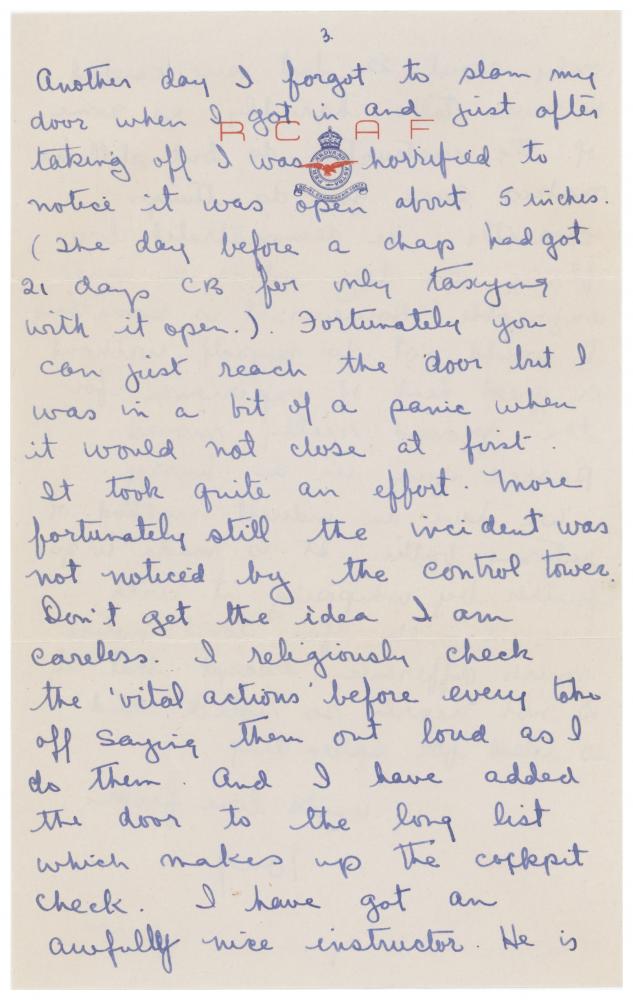 3.
Another day I forgot to slam my
door when I got in and just after
R C A F
taking off I was horrified to
notice it was open about 5 inches.
(The day before a chap had got
21 days CB for only taxying
with it open.). Fortunately you
can just reach the door but I
was in a bit of a panic when
it would not close at first.
It took quite an effort. More
fortunately still the incident was
not noticed by the control tower.
Don't get the idea I am
careless. I religiously check
the 'vital actions' before every take
off saying them out loud as I
do them. And I have added
the door to the long list
which makes up the cockpit
check. I have got an
awfully nice instructor. He is